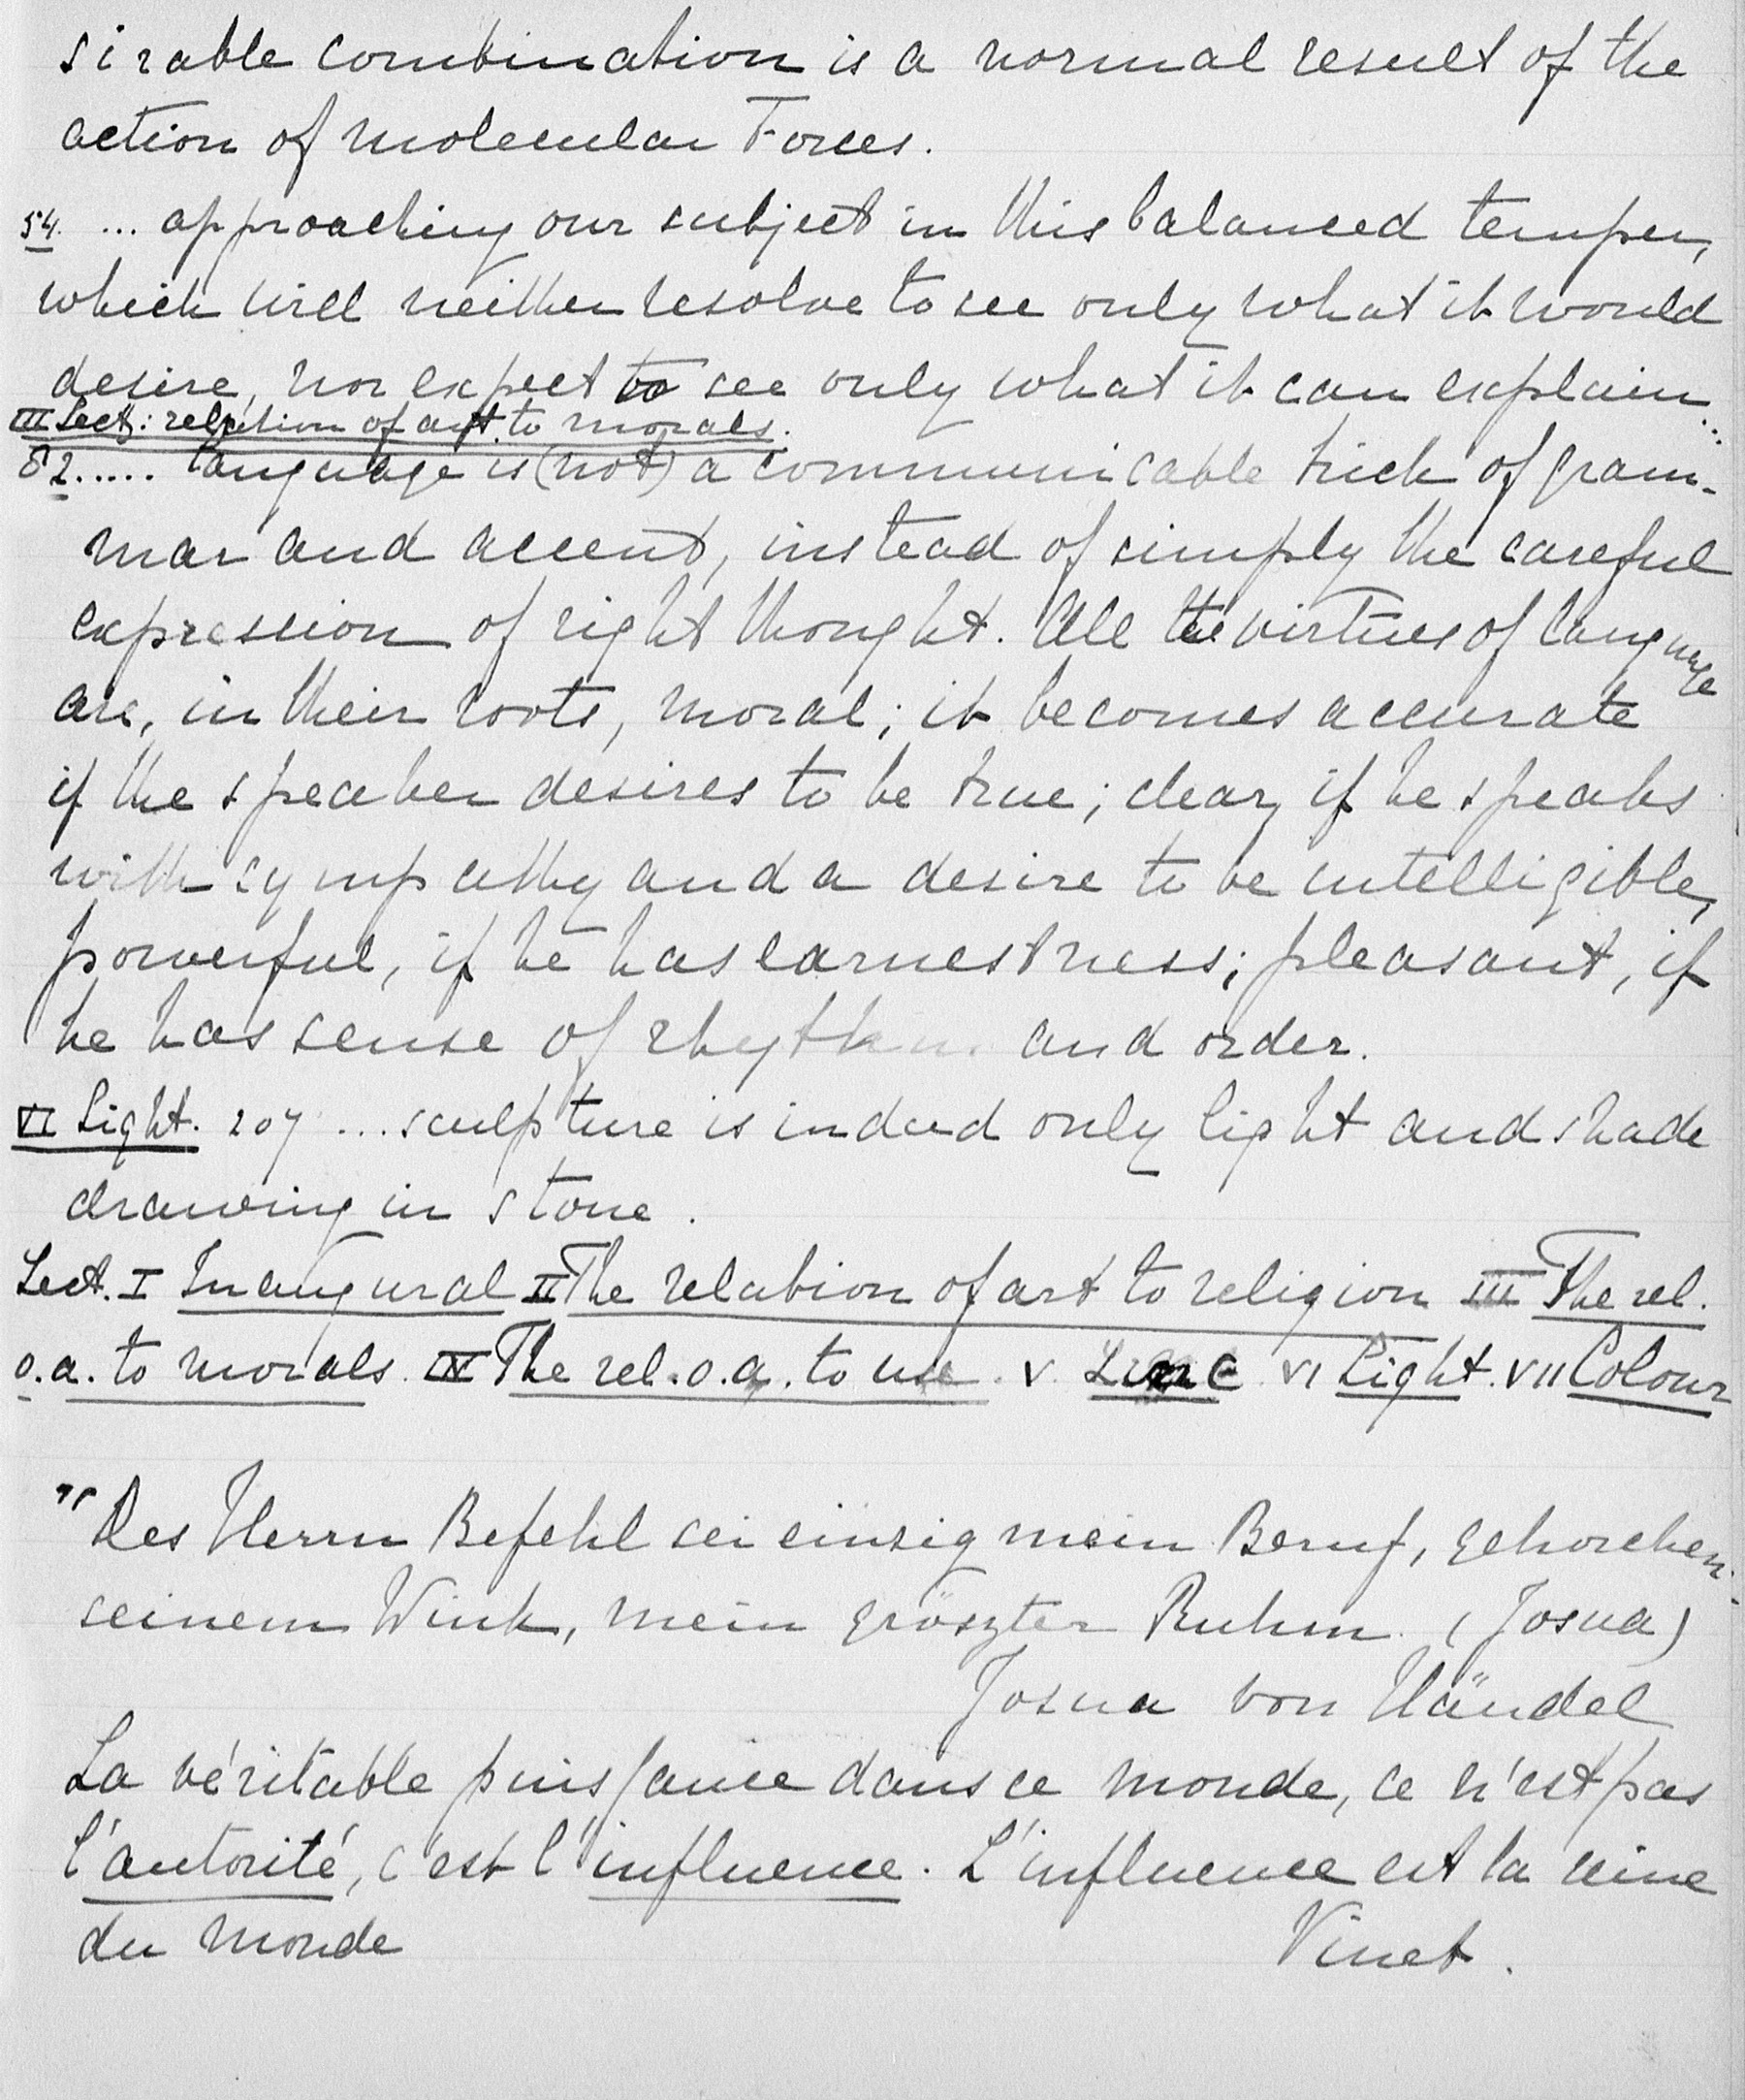 sirable combination is a normal result of the
action of molecular Forces.
54. ... approaching our subject in this balanced temper,
which will neither resolve to see only what it would
desire, nor expect to see only what it can explain...
III Lect: relation of art to morals.
82..... language is (not) a communicable trick of gram-
mar and accent, instead of simply the careful
expression of right thought. All the virtues of language
are, in their roots, moral; it becomes accurate
if the speaker desires to be true; clear, if he speaks
with sympathy and a desire to be intelligible,
powerful, if he has earnestness; pleasant, if
he has sense of rhythm and order.
VI Light. 207 ... sculpture is indeed only light and shade
drawing in stone.
Lect. I Inaugural II The relation of art to religion III The rel.
o.a. to morals. IV The rel. o. a. to use. V Line VI Light. VII Colour
"Des Herrn Befehl sei einzig mein Beruf, gehorchen
seinem Wink, mein gröszter Ruhm. (Josua)
Josua von Händel
La véritable puissance dans ce monde, ce n'est pas
l'autorité, c'est l'influence. L'influence est la reine
du monde
Vinet.